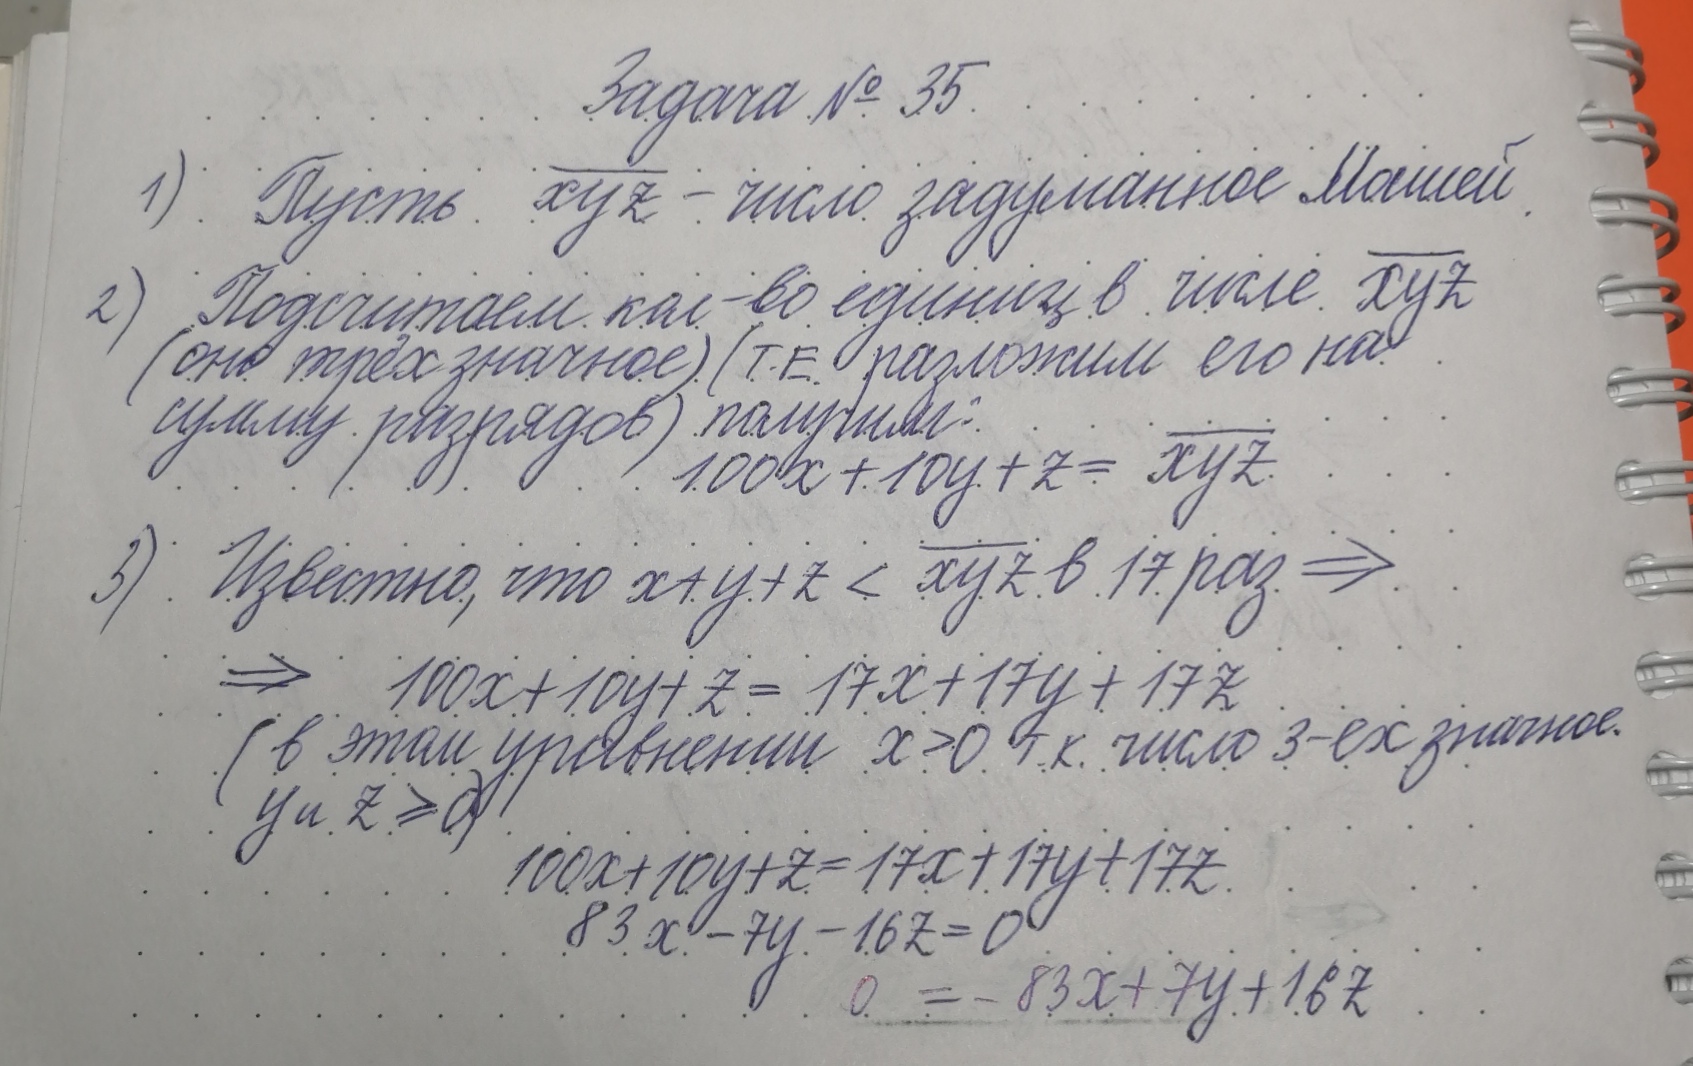 Задача № 35.
1) Пусть xyz – число задуманное Машей.
2) Подсчитаем кол-во единиц в числе xyz
(оно трёхзначное) (т.е. разложим его на
сумму разрядов) получим:
100x + 10y + z = xyz
3) Известно, что x+y+z < xyz в 17 раз ⇒
⇒ 100x+10y+z = 17x+17y+17z
(в этом уравнении x>0 т.к. число 3-ех значное.
y и z ⩾ 0)
100x+10y+z=17x+17y+17z
83x – 7y – 16z = 0
0 = -83x+7y+16z